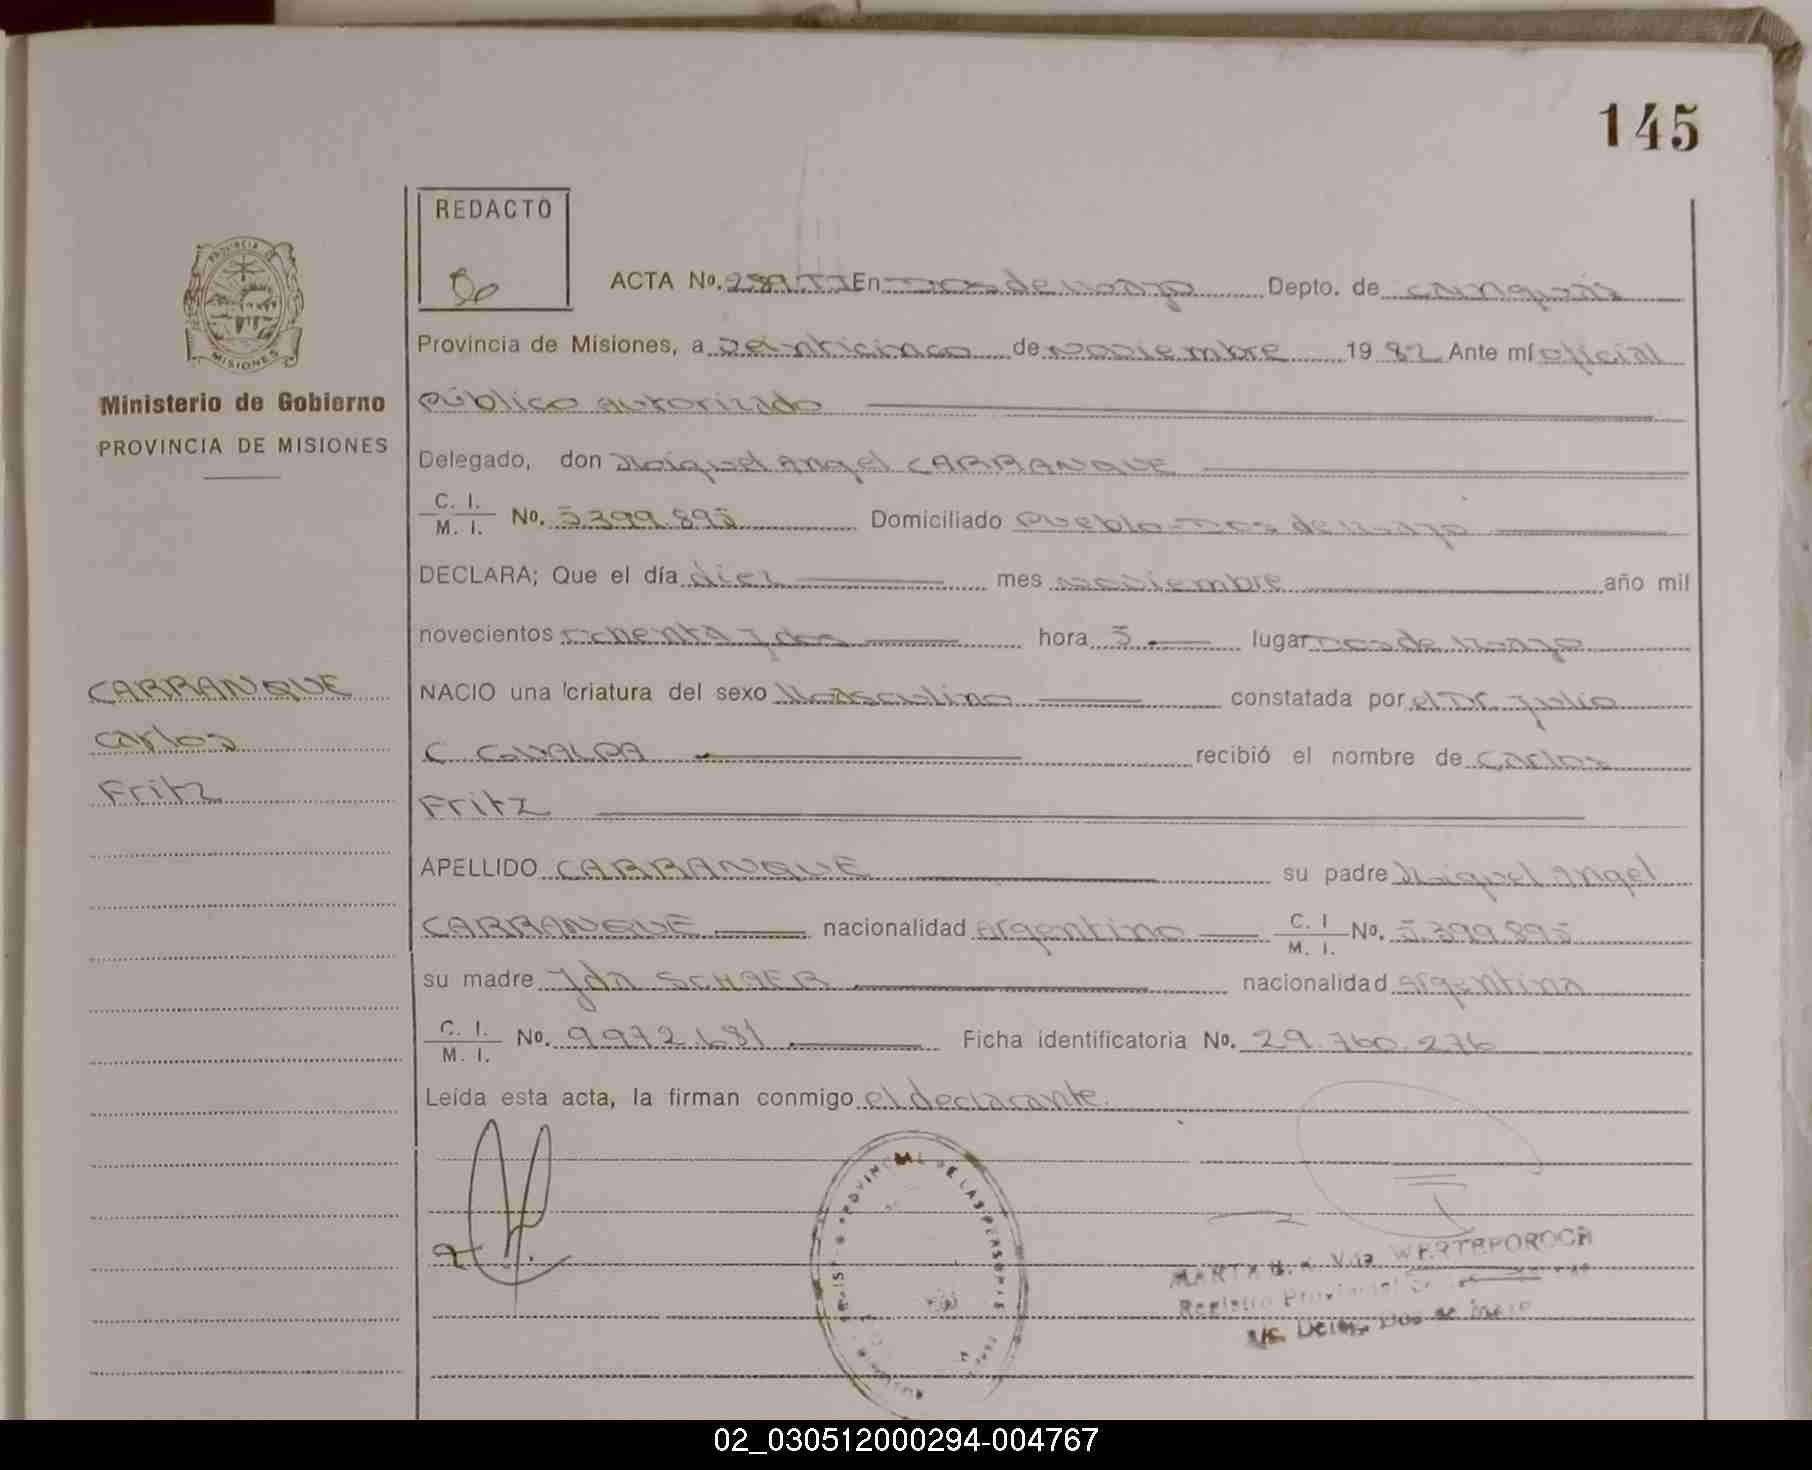 145
REDACTO
ACTA No. 289 TI En Dos de Mayo Depto. de Cainguás
Provincia de Misiones, a veinticinco de noviembre 19 82 Ante mí oficial
público autorizado
Ministerio de Gobierno
PROVINCIA DE MISIONES
PROVINCIA DE
MISIONES
Delegado, don Miguel Angel CARRANQUE
C. I.
M. I. No. 5.399.895 Domiciliado Pueblo Dos de Mayo
DECLARA; Que el día diez mes noviembre año mil
novecientos ochenta y dos hora 5 lugar Dos de Mayo
CARRANQUE
Carlos
Fritz
NACIO una criatura del sexo Masculino constatada por el Dr. Julio
C. GUALPA recibió el nombre de Carlos
Fritz
APELLIDO CARRANQUE su padre Miguel Angel
CARRANQUE nacionalidad argentino C. I. M. I. No. 5.399.895
su madre Yda SCHAER nacionalidad argentina
C. I.
M. I. No. 9.972.681 Ficha identificatoria No. 29.760.276
Leída esta acta, la firman conmigo el declarante.
PROVINCIAL DE LAS PERSONAS
MARTA Vda. WERTEPOROCH
Registro Provincial
Dos de Mayo
02_030512000294-004767